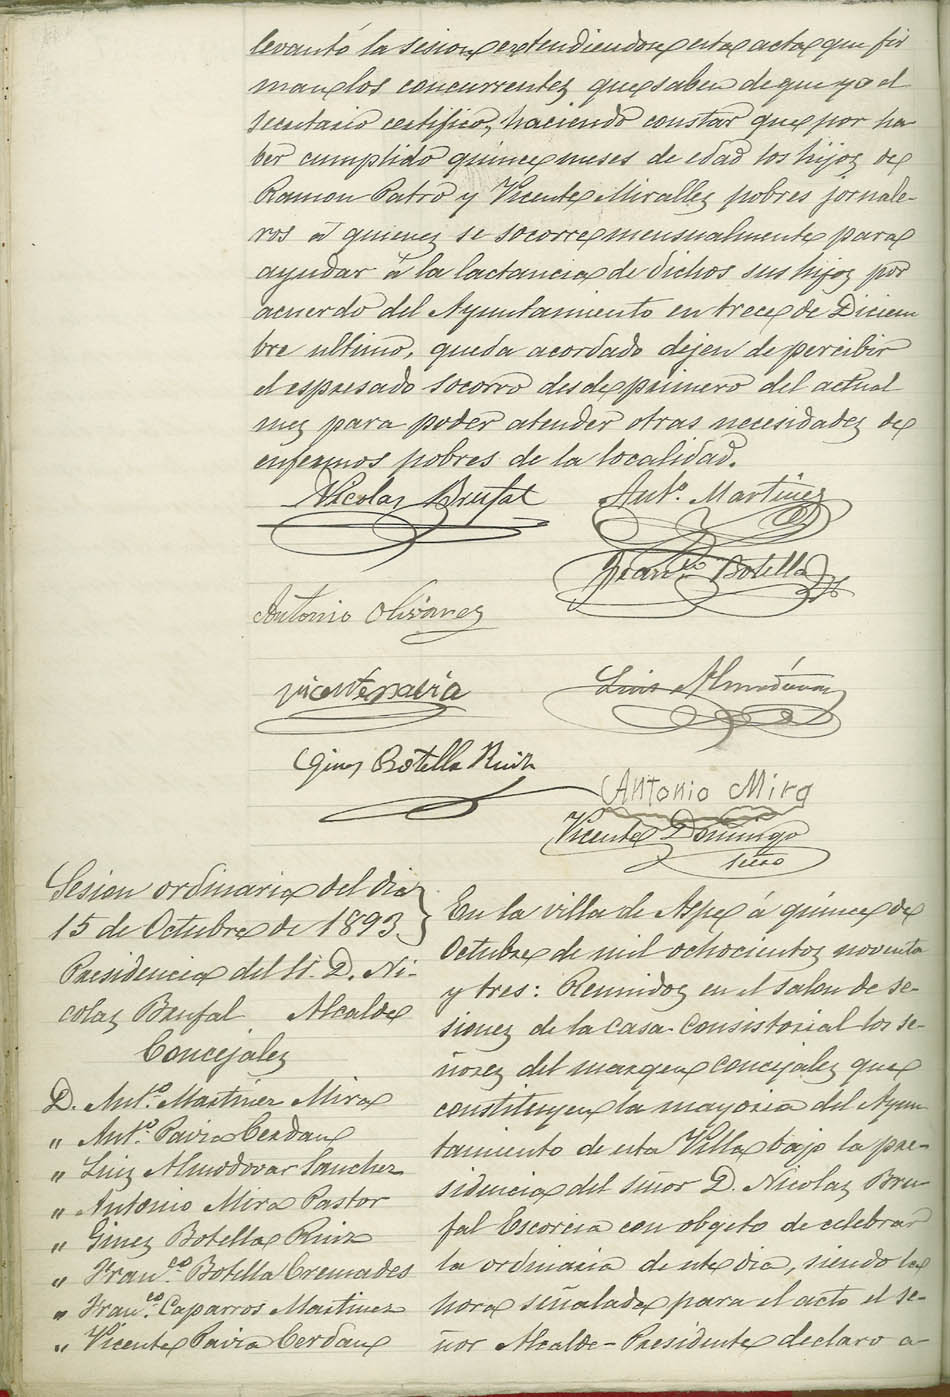 levantó la sesion extendiendose esta acta que fir
man los concurrentes que saben de que yo el
Secretario certifico, haciendo constar que por ha
ber cumplido quince meses de edad los hijos de
Ramon Patró y Vicente Miralles pobres jornale-
ros á quienes se socorre mensualmente para
ayudar á la lactancia de dichos sus hijos por
acuerdo del Ayuntamiento en trece de Diciem
bre ultimo, queda acordado dejen de percibir
el espresado socorro desde primero del actual
mes para poder atender otras necesidades de
enfermos pobres de la localidad.
Nicolas Brufal
Antº. Martinez
Franco. Botella
Antonio Olivares
vicente pavia
Luis Almodóvar
Gines Botella Ruiz
Antonio Mira
Vicente Domingo
Srio
Sesion ordinaria del dia
15 de Octubre de 1893.
Presidencia del Sr. D. Ni-
colas Brufal Alcalde
Concejales
D. Antº. Martinez Mira
" Antº. Pavia Cerdan
" Luis Almodovar Sanchez
" Antonio Mira Pastor
" Gines Botella Ruiz
" Franco. Botella Cremades
" Franco. Caparros Martinez
" Vicente Pavia Cerdan
En la villa de Aspe á quince de
Octubre de mil ochocientos noventa
y tres: Reunidos en el salon de se-
siones de la casa-consistorial los se-
ñores del margen concejales que
constituyen la mayoria del Ayun
tamiento de esta Villa bajo la pre-
sidencia del señor D. Nicolas Bru-
fal Escorcia con objeto de celebrar
la ordinaria de este dia, siendo la
hora señalada para el acto el se-
ñor Alcalde-Presidente declaro a-